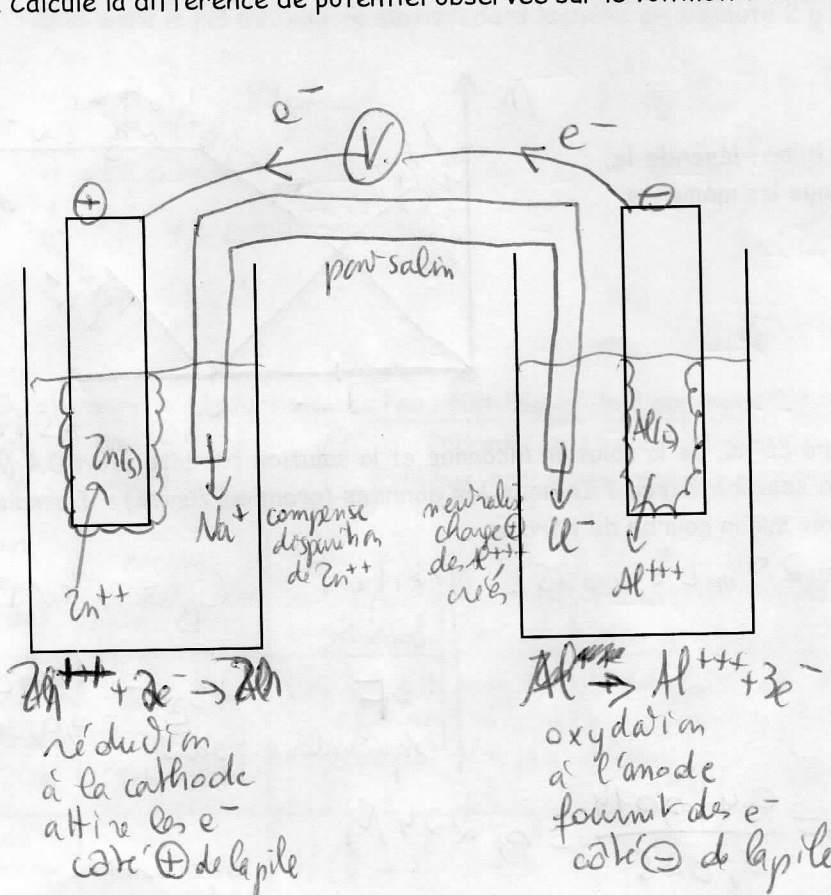 Calcule la différence de potentiel observée sur le voltmètre
e⁻
V
e⁻
+
-
pont salin
Zn(s)
Al(s)
Na⁺
compense
disparition
de Zn⁺⁺
neutralise
charge +
des Al⁺⁺⁺
créés
Cl⁻
Zn⁺⁺
Al⁺⁺⁺
Zn⁺⁺ + 2e⁻ → Zn
réduction
à la cathode
attire les e⁻
côté + de la pile
Al → Al⁺⁺⁺ + 3e⁻
oxydation
à l'anode
fournit des e⁻
côté - de la pile